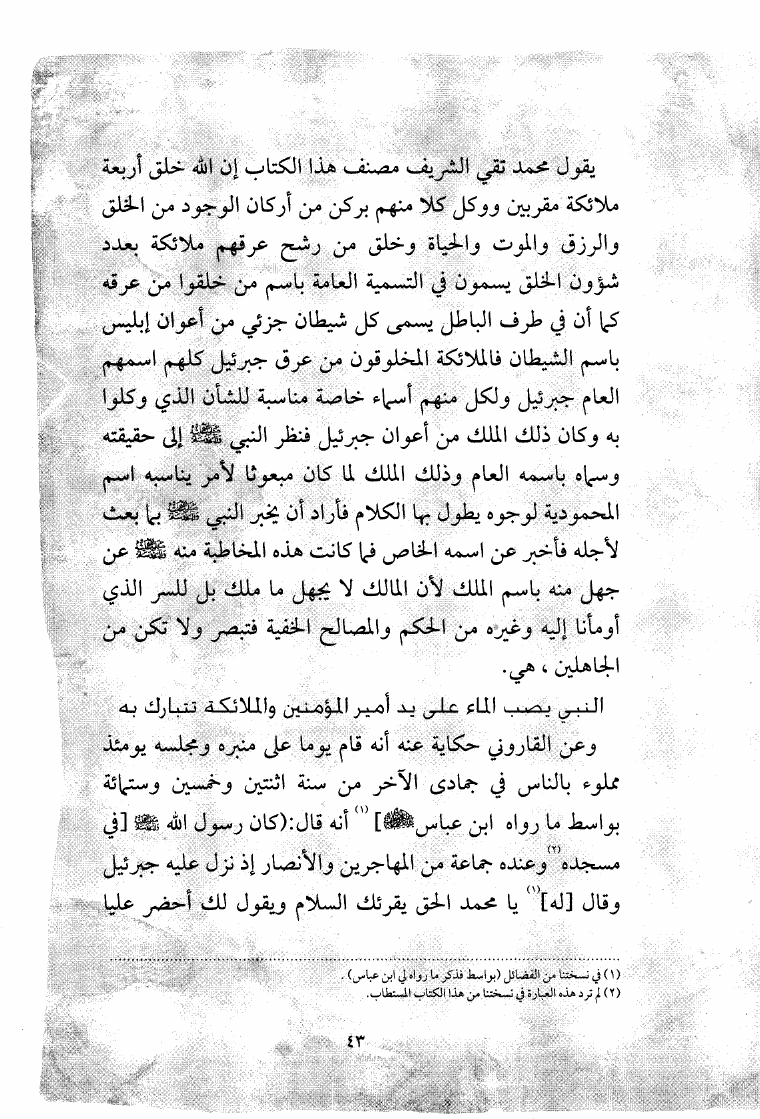 يقول محمد تقي الشريف مصنف هذا الكتاب إن الله خلق أربعة
ملائكة مقربين ووكل كلا منهم بركن من أركان الوجود من الخلق
والرزق والموت والحياة وخلق من رشح عرقهم ملائكة بعدد
شؤون الخلق يسمون في التسمية العامة باسم من خلقوا من عرقه
كما أن في طرف الباطل يسمى كل شيطان جزئي من أعوان إبليس
باسم الشيطان فالملائكة المخلوقون من عرق جبرئيل كلهم اسمهم
العام جبرئيل ولكل منهم أسماء خاصة مناسبة للشأن الذي وكلوا
به وكان ذلك الملك من أعوان جبرئيل فنظر النبي ﷺ إلى حقيقته
وسماه باسمه العام وذلك الملك لما كان مبعوثا لأمر يناسبه اسم
المحمودية لوجوه يطول بها الكلام فأراد أن يخبر النبي ﷺ بما بعث
لأجله فأخبر عن اسمه الخاص فما كانت هذه المخاطبة منه ﷺ عن
جهل منه باسم الملك لأن المالك لا يجهل ما ملك بل للسر الذي
أومأنا إليه وغيره من الحكم والمصالح الخفية فتبصر ولا تكن من
الجاهلين ، هي.
النبي يصب الماء على يد أمير المؤمنين والملائكة تتبارك به
وعن القاروني حكاية عنه أنه قام يوما على منبره ومجلسه يومئذ
مملوء بالناس في جمادى الآخر من سنة اثنتين وخمسين وستمائة
بواسط ما رواه ابن عباس [(١) أنه قال:(كان رسول الله ﷺ [في
مسجده(٢) وعنده جماعة من المهاجرين والأنصار إذ نزل عليه جبرئيل
وقال [له](١) يا محمد الحق يقرئك السلام ويقول لك أحضر عليا
(١) في نسختنا من الفضائل (بواسط فذكر ما رواه لي ابن عباس) .
(٢) لم ترد هذه العبارة في نسختنا من هذا الكتاب المستطاب.
٤٣